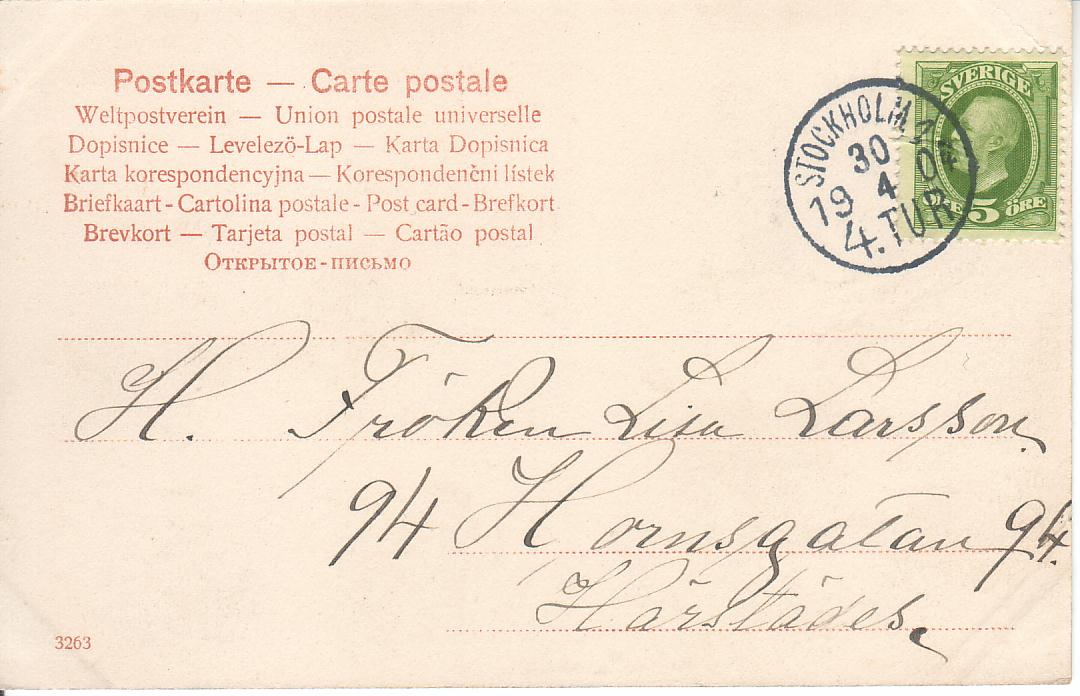 Postkarte — Carte postale
Weltpostverein — Union postale universelle
Dopisnice — Levelező-Lap — Karta Dopisnica
Karta korespondencyjna — Korespondenční lístek
Briefkaart - Cartolina postale - Post card - Brefkort
Brevkort — Tarjeta postal — Cartão postal
Открытое-письмо
SVERIGE
5 ÖRE
STOCKHOLM
30
19 4 04
4. TUR
H. Fröken Lisa Larsson
94 Hornsgatan 94.
Härstädes
3263